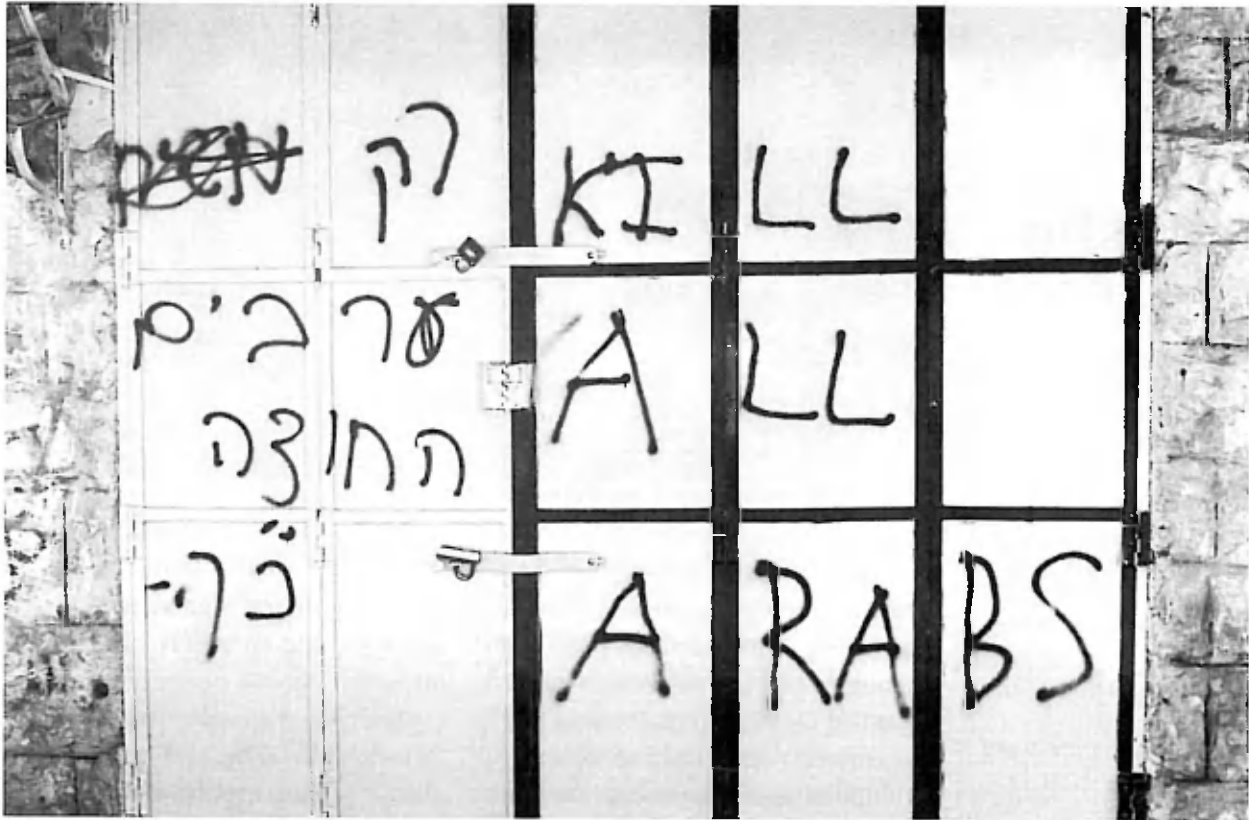 רק
ערבים
החוצה
כ"ך
KILL
ALL
ARABS